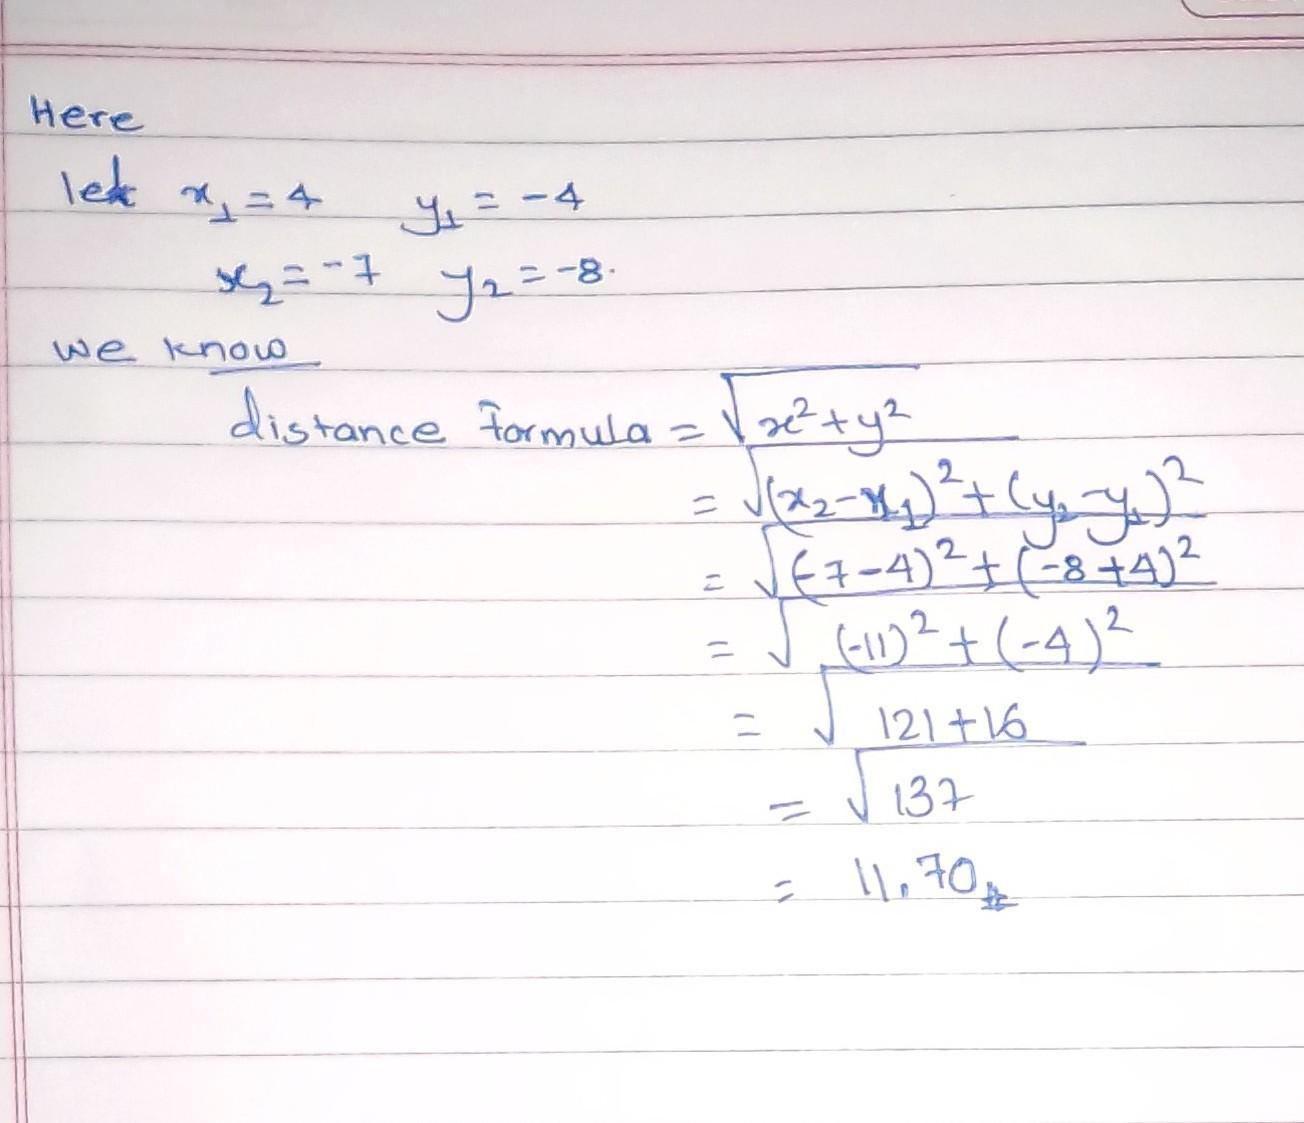 Here
let x₁ = 4 y₁ = -4
x₂ = -7 y₂ = -8.
we know
distance formula = √x² + y²
= √(x₂-x₁)² + (y₂-y₁)²
= √(-7-4)² + (-8+4)²
= √(-11)² + (-4)²
= √121+16
= √137
= 11.70